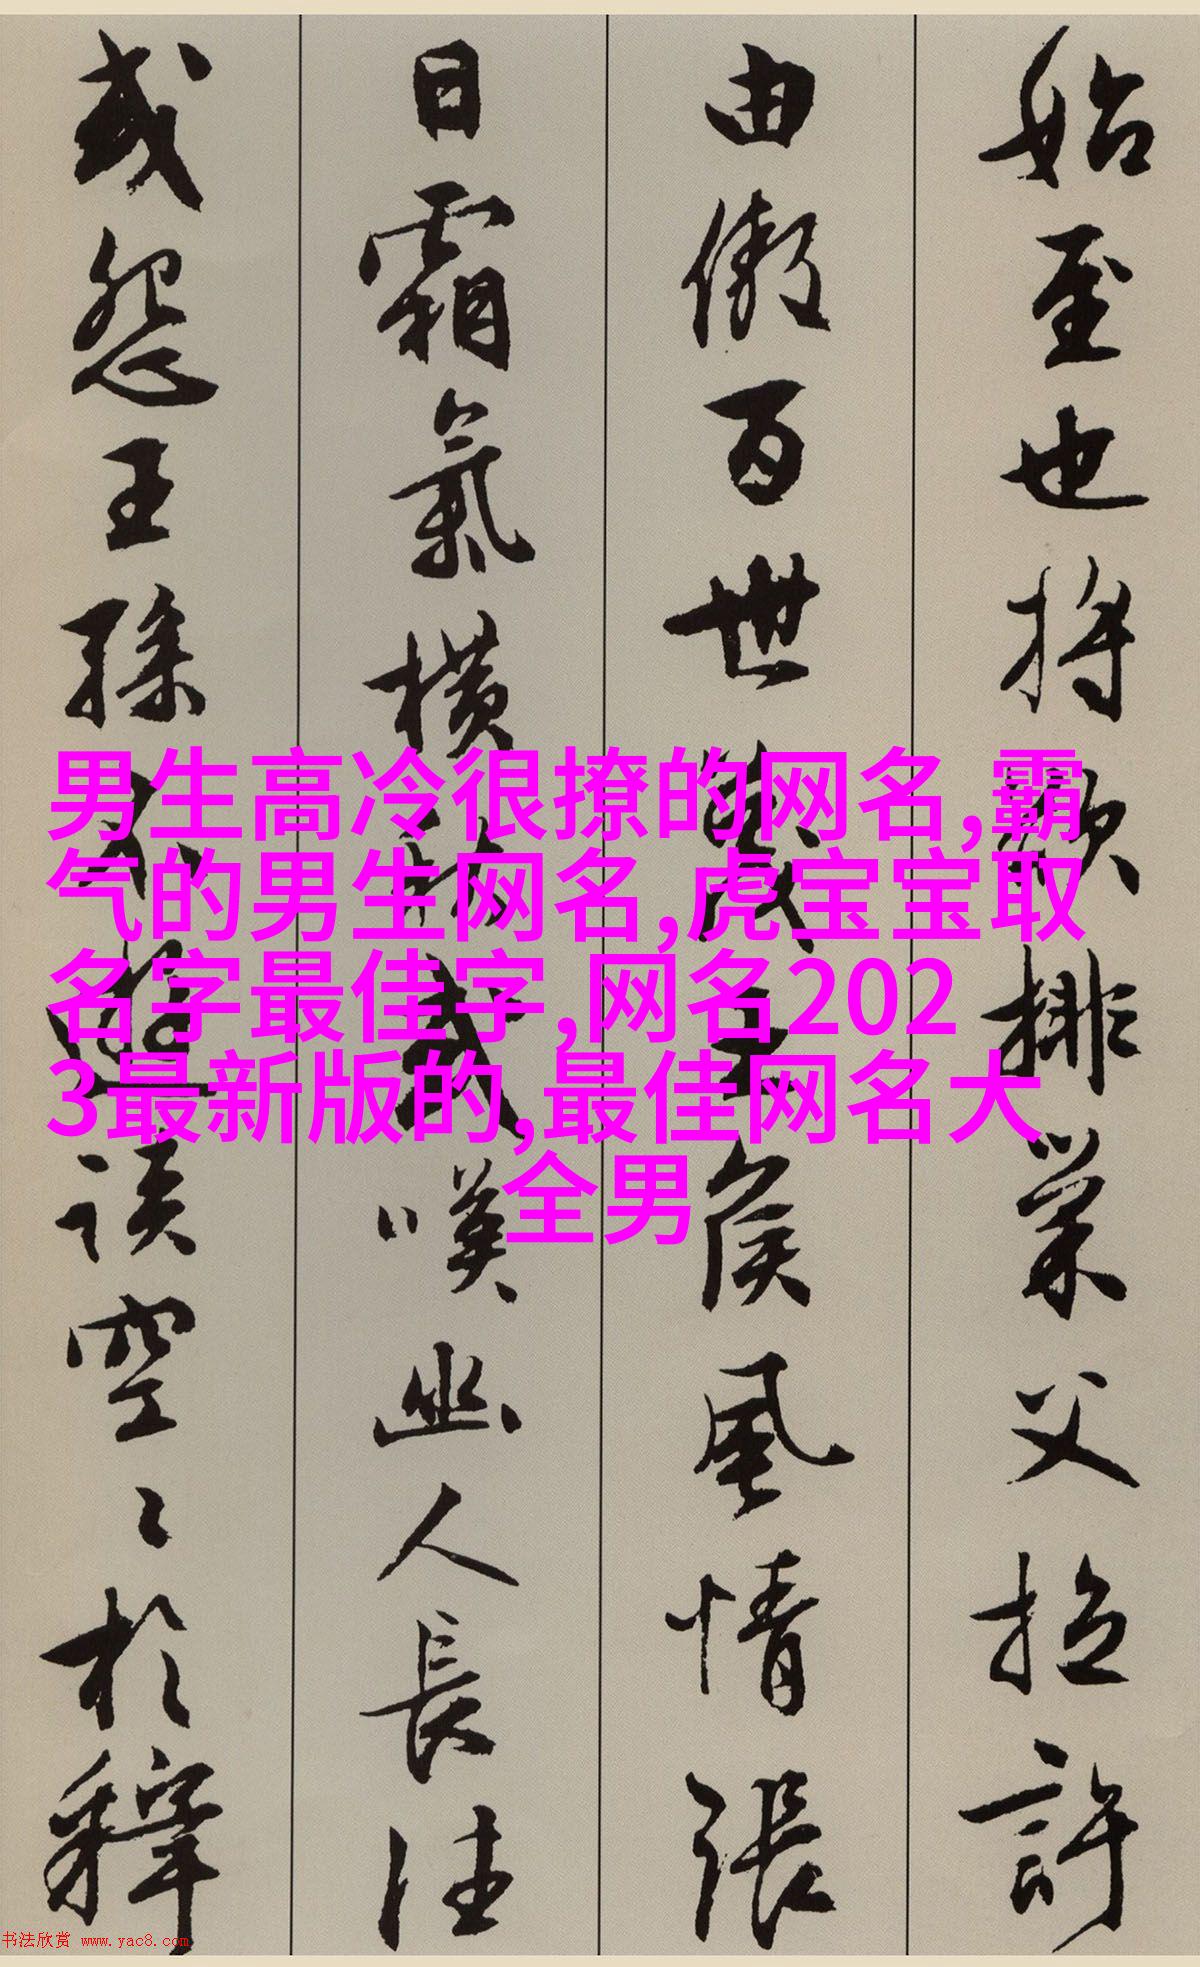 始至也將欲排巢父拉許
由傲百世蔑王侯風情張
日霜氣橫秋或嘆幽人長往
或怨王孫不遊談空〻於釋
男生高冷很撩的网名,霸
气的男生网名,虎宝宝取
名字最佳字,网名202
3最新版的,最佳网名大
全男
书法欣赏 www.yac8.com